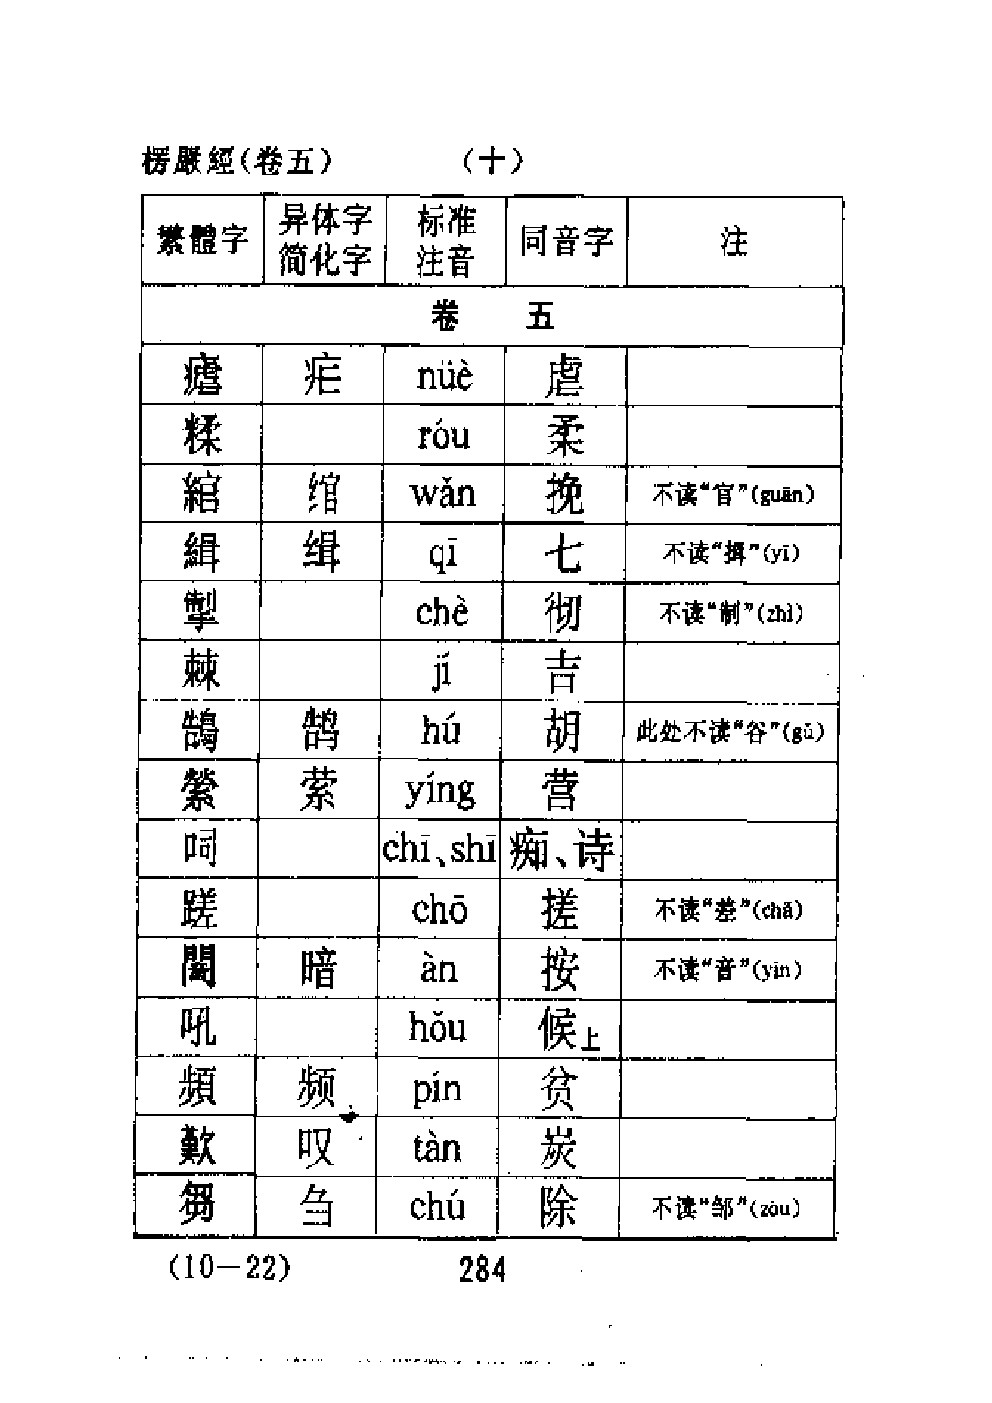 楞嚴經(卷五) (十)
繁體字 异体字 简化字 标准 注音 同音字 注
卷 五
瘧 疟 nüè 虐
糅 róu 柔
綰 绾 wǎn 挽 不读“官”(guān)
緝 缉 qī 七 不读“揖”(yī)
掣 chè 彻 不读“制”(zhì)
棘 jí 吉
鵠 鹄 hú 胡 此处不读“谷”(gǔ)
縈 萦 yíng 营
呞 chī、shī 痴、诗
蹉 chō 搓 不读“差”(chā)
闇 暗 àn 按 不读“音”(yīn)
吼 hǒu 候上
頻 频 pín 贫
歎 叹 tàn 炭
芻 刍 chú 除 不读“邹”(zōu)
(10—22) 284